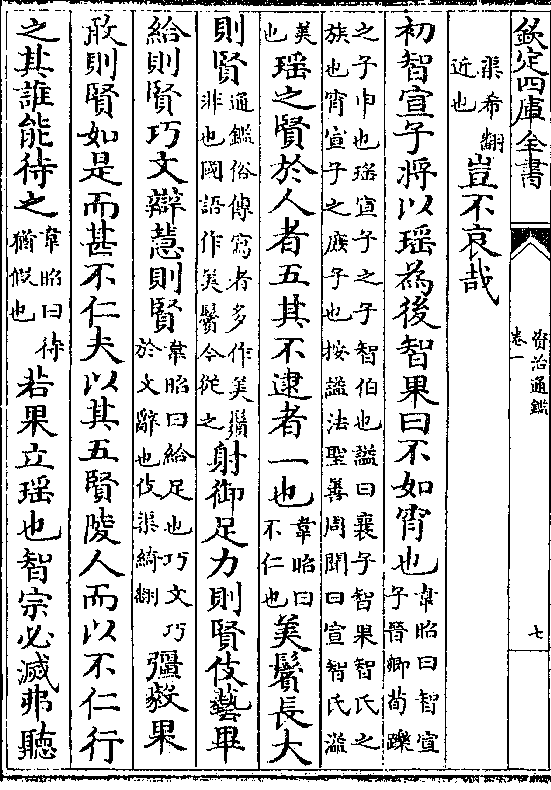 欽定四庫全書
資治通鑑
卷一
七
渠希翻近也豈不哀哉
初智宣子將以瑶為後智果曰不如宵也韋昭曰智宣子晉卿荀躒
之子申也瑶宣子之子智伯也諡曰襄子智果智氏之族也宵宣子之庶子也按諡法聖善周聞曰宣智氏溢
美也瑶之賢於人者五其不逮者一也韋昭曰不仁也美鬢長大
則賢通鑑俗傳寫者多作美鬚非也國語作美鬢今從之射御足力則賢伎藝畢
給則賢巧文辯慧則賢韋昭曰給足也巧文巧於文辭也伎渠綺翻彊毅果
敢則賢如是而甚不仁夫以其五賢陵人而以不仁行
之其誰能待之韋昭曰待猶假也若果立瑶也智宗必滅弗聽